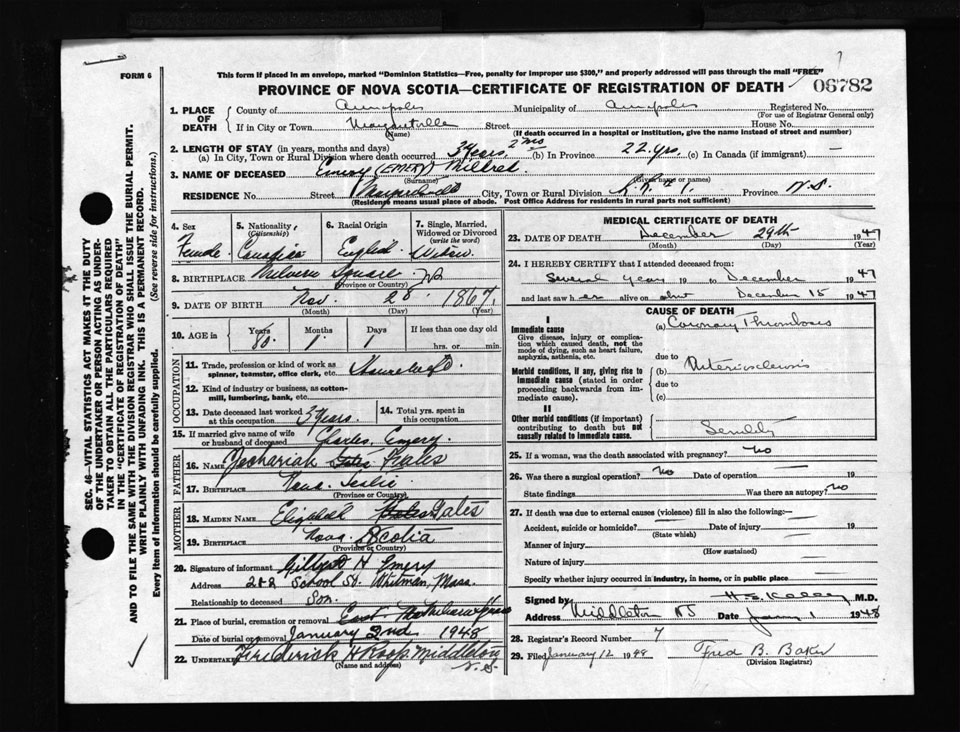 This form if placed in an envelope, marked "Dominion Statistics—Free, penalty for improper use $300," and properly addressed will pass through the mail "FREE"
FORM 6
PROVINCE OF NOVA SCOTIA—CERTIFICATE OF REGISTRATION OF DEATH 06782
1. PLACE OF DEATH
County of Annapolis Municipality of Annapolis Registered No.
(For use of Registrar General only)
If in City or Town Street House No.
(Name) (If death occurred in a hospital or institution, give the name instead of street and number)
2. LENGTH OF STAY (in years, months and days)
(a) In City, Town or Rural Division where death occurred 3 years 2 mos (b) In Province 22 yrs. (c) In Canada (if immigrant) —
3. NAME OF DECEASED Emery (EMERY) Mildred
(Surname) (Given name or names)
RESIDENCE No. Street City, Town or Rural Division R.R. # 1. Province N.S.
(Residence means usual place of abode. Post Office Address for residents in rural parts not sufficient)
4. Sex Female
5. Nationality (Citizenship) Canadian
6. Racial Origin English
7. Single, Married, Widowed or Divorced (write the word) Widow
8. BIRTHPLACE Melvern Square NS
(Province or Country)
9. DATE OF BIRTH Nov. 28 1867
(Month) (Day) (Year)
10. AGE in Years 80 Months 1 Days 1 If less than one day old hrs. or min.
OCCUPATION
11. Trade, profession or kind of work as spinner, teamster, office clerk, etc. Housewife
12. Kind of industry or business, as cotton-mill, lumbering, bank, etc.
13. Date deceased last worked at this occupation 3 years.
14. Total yrs. spent in this occupation
15. If married give name of wife or husband of deceased Charles Emery.
FATHER
16. NAME Zachariah Gates
17. BIRTHPLACE Nova Scotia
(Province or Country)
MOTHER
18. MAIDEN NAME Elizabeth Gates
19. BIRTHPLACE Nova Scotia
(Province or Country)
20. Signature of informant Gilbert H Emery
Address 288 School St. Whitman, Mass.
Relationship to deceased Son.
21. Place of burial, cremation or removal
Date of burial or removal January 2nd 1948
22. Undertaker Frederick H Roop. Middleton N.S.
(Name and address)
MEDICAL CERTIFICATE OF DEATH
23. DATE OF DEATH December 29th 1947
(Month) (Day) (Year)
24. I HEREBY CERTIFY that I attended deceased from:
Several years 19 to December 1947
and last saw her alive on about December 15 1947
CAUSE OF DEATH
I
Immediate cause
Give disease, injury or complication which caused death, not the mode of dying, such as heart failure, asphyxia, asthenia, etc.
(a) Coronary Thrombosis
due to
Morbid conditions, if any, giving rise to immediate cause (stated in order proceeding backwards from immediate).
(b) Arteriosclerosis
due to
(c)
II
Other morbid conditions (if important) contributing to death but not causally related to immediate cause.
Senility
25. If a woman, was the death associated with pregnancy? no
26. Was there a surgical operation? no Date of operation — 19
State findings Was there an autopsy? no
27. If death was due to external causes (violence) fill in also the following:—
Accident, suicide or homicide? Date of injury 19
(State which)
Manner of injury
(How sustained)
Nature of injury
Specify whether injury occurred in industry, in home, or in public place
Signed by H. S. Kelley M.D.
Address Middleton NS Date Jany 1 1948
28. Registrar's Record Number 7
29. Filed January 12 1948 Fred B. Baker
(Division Registrar)
SEC. 46—VITAL STATISTICS ACT MAKES IT THE DUTY
OF THE UNDERTAKER OR PERSON ACTING AS UNDERTAKER
TO OBTAIN ALL THE PARTICULARS REQUIRED
IN THE "CERTIFICATE OF REGISTRATION OF DEATH"
AND TO FILE THE SAME WITH THE DIVISION REGISTRAR WHO SHALL ISSUE THE BURIAL PERMIT.
WRITE PLAINLY WITH UNFADING INK. THIS IS A PERMANENT RECORD.
Every item of information should be carefully supplied. (See reverse side for instructions.)